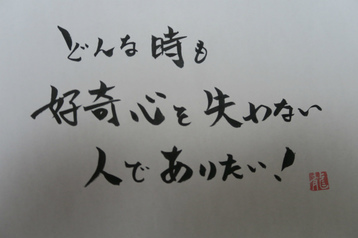 どんな時も
好奇心を失わない
人でありたい!